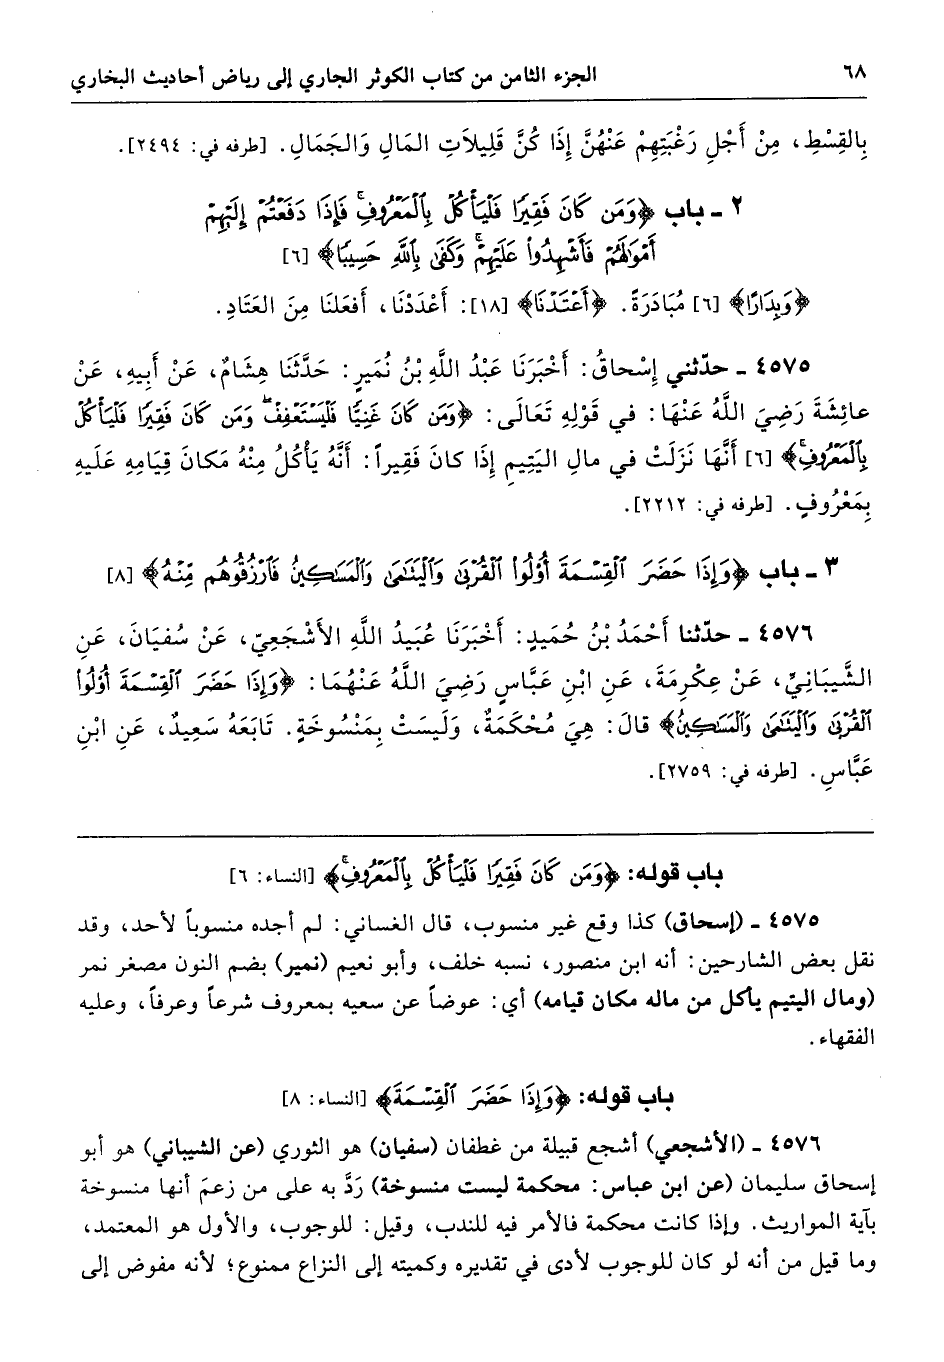 ٦٨ الجزء الثامن من كتاب الكوثر الجاري إلى رياض أحاديث البخاري
بِالقِسْطِ، مِنْ أَجْلِ رَغْبَتِهِمْ عَنْهُنَّ إِذَا كُنَّ قَلِيلاَتِ المَالِ وَالجَمَالِ. [طرفه في: ٢٤٩٤].
٢ ـ باب ﴿وَمَن كَانَ فَقِيرًا فَلْيَأْكُلْ بِٱلْمَعْرُوفِۚ فَإِذَا دَفَعْتُمْ إِلَيْهِمْ
أَمْوَٰلَهُمْ فَأَشْهِدُوا۟ عَلَيْهِمْۚ وَكَفَىٰ بِٱللَّهِ حَسِيبًا﴾ [٦]
﴿وَبِدَارًا﴾ [٦] مُبَادَرَةً. ﴿أَعْتَدْنَا﴾ [١٨]: أَعْدَدْنَا، أَفعَلنَا مِنَ العَتَادِ.
٤٥٧٥ ـ حدّثني إِسْحاقُ: أَخْبَرَنَا عَبْدُ اللَّهِ بْنُ نُمَيرٍ: حَدَّثَنَا هِشَامٌ، عَنْ أَبِيهِ، عَنْ
عائِشَةَ رَضِيَ اللَّهُ عَنْهَا: في قَوْلِهِ تَعَالَى: ﴿وَمَن كَانَ غَنِيًّا فَلْيَسْتَعْفِفْۖ وَمَن كَانَ فَقِيرًا فَلْيَأْكُلْ
بِٱلْمَعْرُوفِۚ﴾ [٦] أَنَّهَا نَزَلَتْ في مالِ اليَتِيمِ إِذَا كانَ فَقيراً: أَنَّهُ يَأْكُلُ مِنْهُ مَكانَ قِيَامِهِ عَلَيهِ
بِمَعْرُوفٍ. [طرفه في: ٢٢١٢].
٣ ـ باب ﴿وَإِذَا حَضَرَ ٱلْقِسْمَةَ أُو۟لُوا۟ ٱلْقُرْبَىٰ وَٱلْيَتَٰمَىٰ وَٱلْمَسَٰكِينُ فَٱرْزُقُوهُم مِّنْهُ﴾ [٨]
٤٥٧٦ ـ حدّثنا أَحْمَدُ بْنُ حُمَيدٍ: أَخْبَرَنَا عُبَيدُ اللَّهِ الأَشْجَعِيّ، عَنْ سُفيَانَ، عَنِ
الشَّيبَانِيِّ، عَنْ عِكْرِمَةَ، عَنِ ابْنِ عَبَّاسٍ رَضِيَ اللَّهُ عَنْهُمَا: ﴿وَإِذَا حَضَرَ ٱلْقِسْمَةَ أُو۟لُوا۟
ٱلْقُرْبَىٰ وَٱلْيَتَٰمَىٰ وَٱلْمَسَٰكِينُ﴾ قالَ: هِيَ مُحْكَمَةٌ، وَلَيسَتْ بِمَنْسُوخَةٍ. تَابَعَهُ سَعِيدٌ، عَنِ ابْنِ
عَبَّاسٍ. [طرفه في: ٢٧٥٩].
باب قوله: ﴿وَمَن كَانَ فَقِيرًا فَلْيَأْكُلْ بِٱلْمَعْرُوفِۚ﴾ [النساء: ٦]
٤٥٧٥ ـ (إسحاق) كذا وقع غير منسوب، قال الغساني: لم أجده منسوباً لأحد، وقد
نقل بعض الشارحين: أنه ابن منصور، نسبه خلف، وأبو نعيم (نمير) بضم النون مصغر نمر
(ومال اليتيم يأكل من ماله مكان قيامه) أي: عوضاً عن سعيه بمعروف شرعاً وعرفاً، وعليه
الفقهاء.
باب قوله: ﴿وَإِذَا حَضَرَ ٱلْقِسْمَةَ﴾ [النساء: ٨]
٤٥٧٦ ـ (الأشجعي) أشجع قبيلة من غطفان (سفيان) هو الثوري (عن الشيباني) هو أبو
إسحاق سليمان (عن ابن عباس: محكمة ليست منسوخة) رَدَّ به على من زعمَ أنها منسوخة
بآية المواريث. وإذا كانت محكمة فالأمر فيه للندب، وقيل: للوجوب، والأول هو المعتمد،
وما قيل من أنه لو كان للوجوب لأدى في تقديره وكميته إلى النزاع ممنوع؛ لأنه مفوض إلى